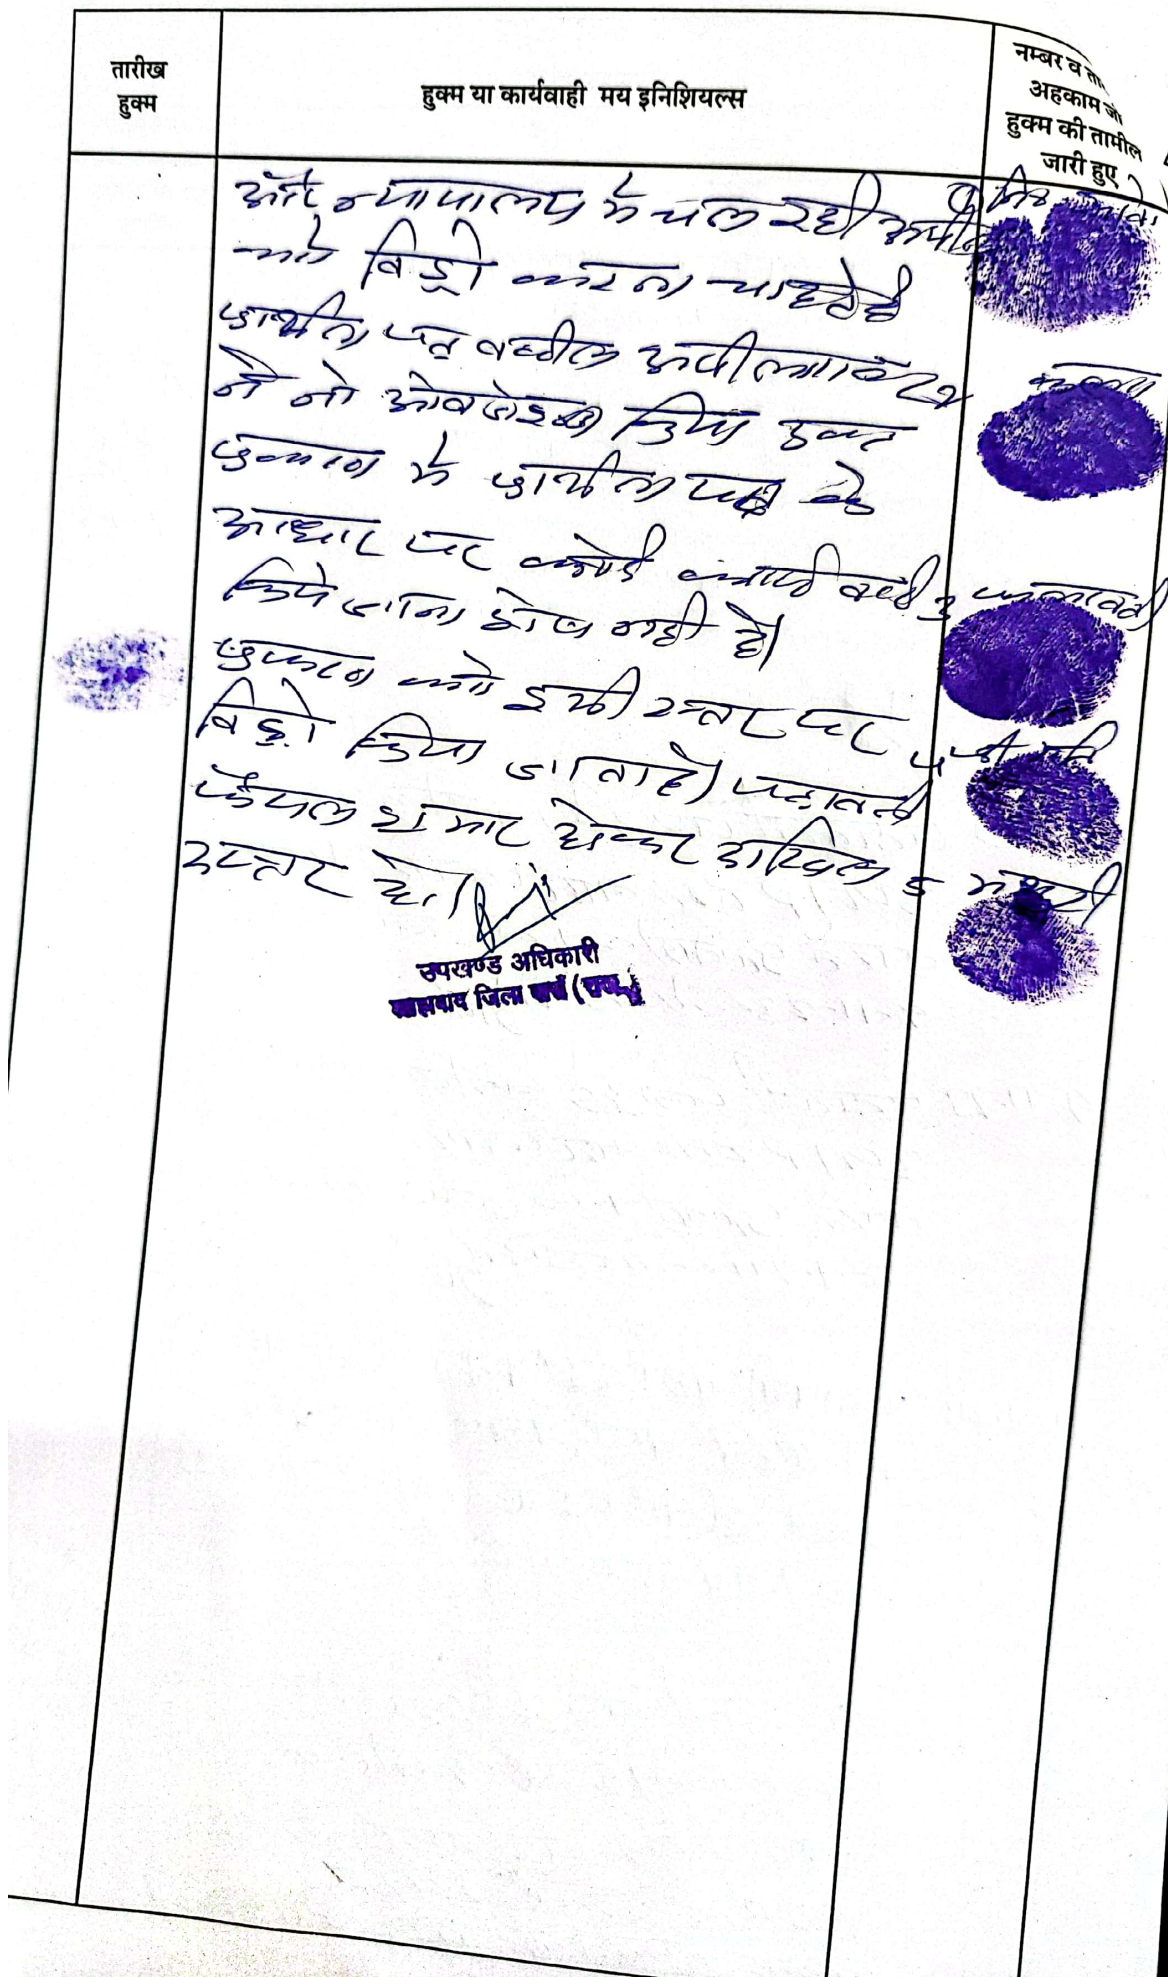 तारीख
हुक्म
हुक्म या कार्यवाही मय इनिशियल्स
नम्बर व ता
अहकाम जो
हुक्म की तामील
जारी हुए
न्यायालय मे चल रही अपील
को विड्रो करना चाहते है
प्रार्थना पत्र वकील अपीलान्ट
ने नो ओबजेक्शन किया उक्त
प्रकरण मे प्रार्थना पत्र के
आधार पर कोई कार्यवाही
किये जाना शेष नही है।
प्रकरण को इसी स्तर पर
विड्रो किया जाता है। पत्रावली
फैसल शुमार होकर दाखिल
दफ्तर हो।
उपखण्ड अधिकारी
शाहबाद जिला बारां (राज.)